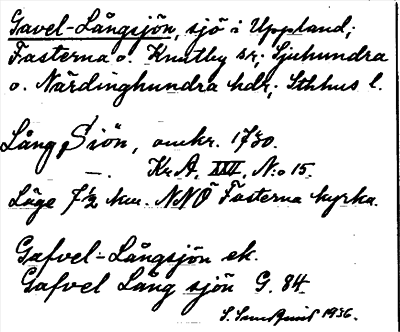 Gavel-Långsjön, sjö i Uppland;
Fasterna o. Knutby sr; Sjuhundra
o. Närdinghundra hdr; Sthlms l.
Lång Siön, omkr. 1730.
—. Kr. A. XXV, N:o 15.
Läge 7½ km. NNÖ Fasterna kyrka.
Gafvel-Långsjön ek.
Gafvel Lång sjön G. 84
1936.